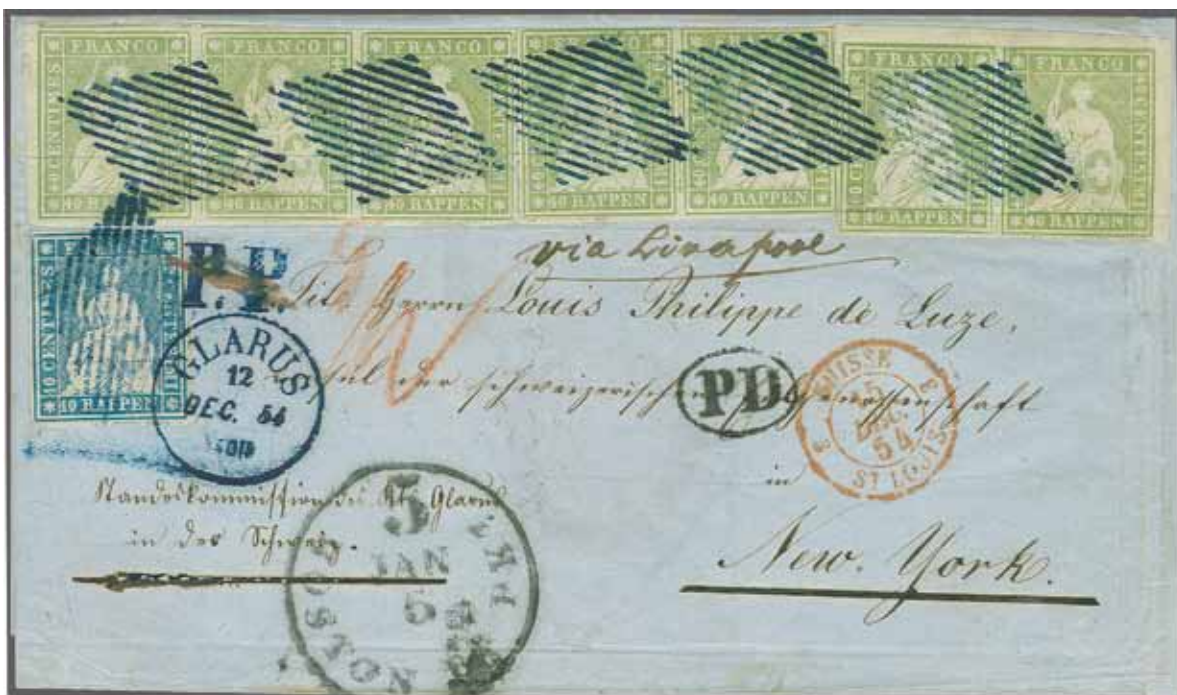 FRANCO FRANCO FRANCO FRANCO FRANCO FRANCO FRANCO
40 CENTIMES
40 RAPPEN 40 RAPPEN 40 RAPPEN 40 RAPPEN 40 RAPPEN 40 RAPPEN 40 RAPPEN
via Liverpool
P.P.
Tit. Herrn Louis Philippe de Luze,
10 CENTIMES
10 RAPPEN
GLARUS
12
DEC. 54
der schweizerischen Eidgenossenschaft
PD
SUISSE
15
DEC.
54
ST LOUIS
in
New-York.
Standeskommission des Kt. Glarus
in der Schweiz.
BOSTON
5
JAN
5